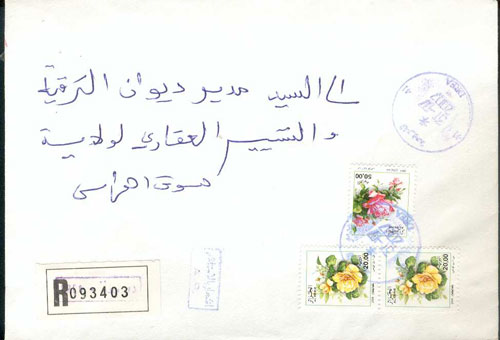 إلى السيد مدير ديوان الترقية
و التسيير العقاري لولاية
سوق اهراس
50.00
20.00
20.00
R 093403